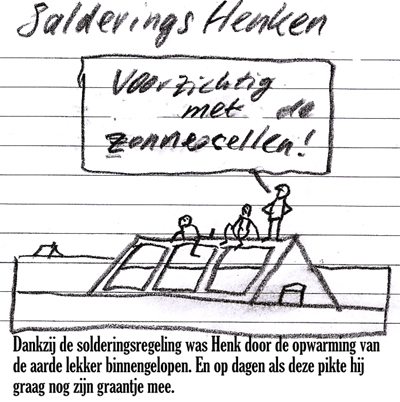 Salderings Henken
Voorzichtig
met de
zonnecellen!
Dankzij de solderingsregeling was Henk door de opwarming van
de aarde lekker binnengelopen. En op dagen als deze pikte hij
graag nog zijn graantje mee.